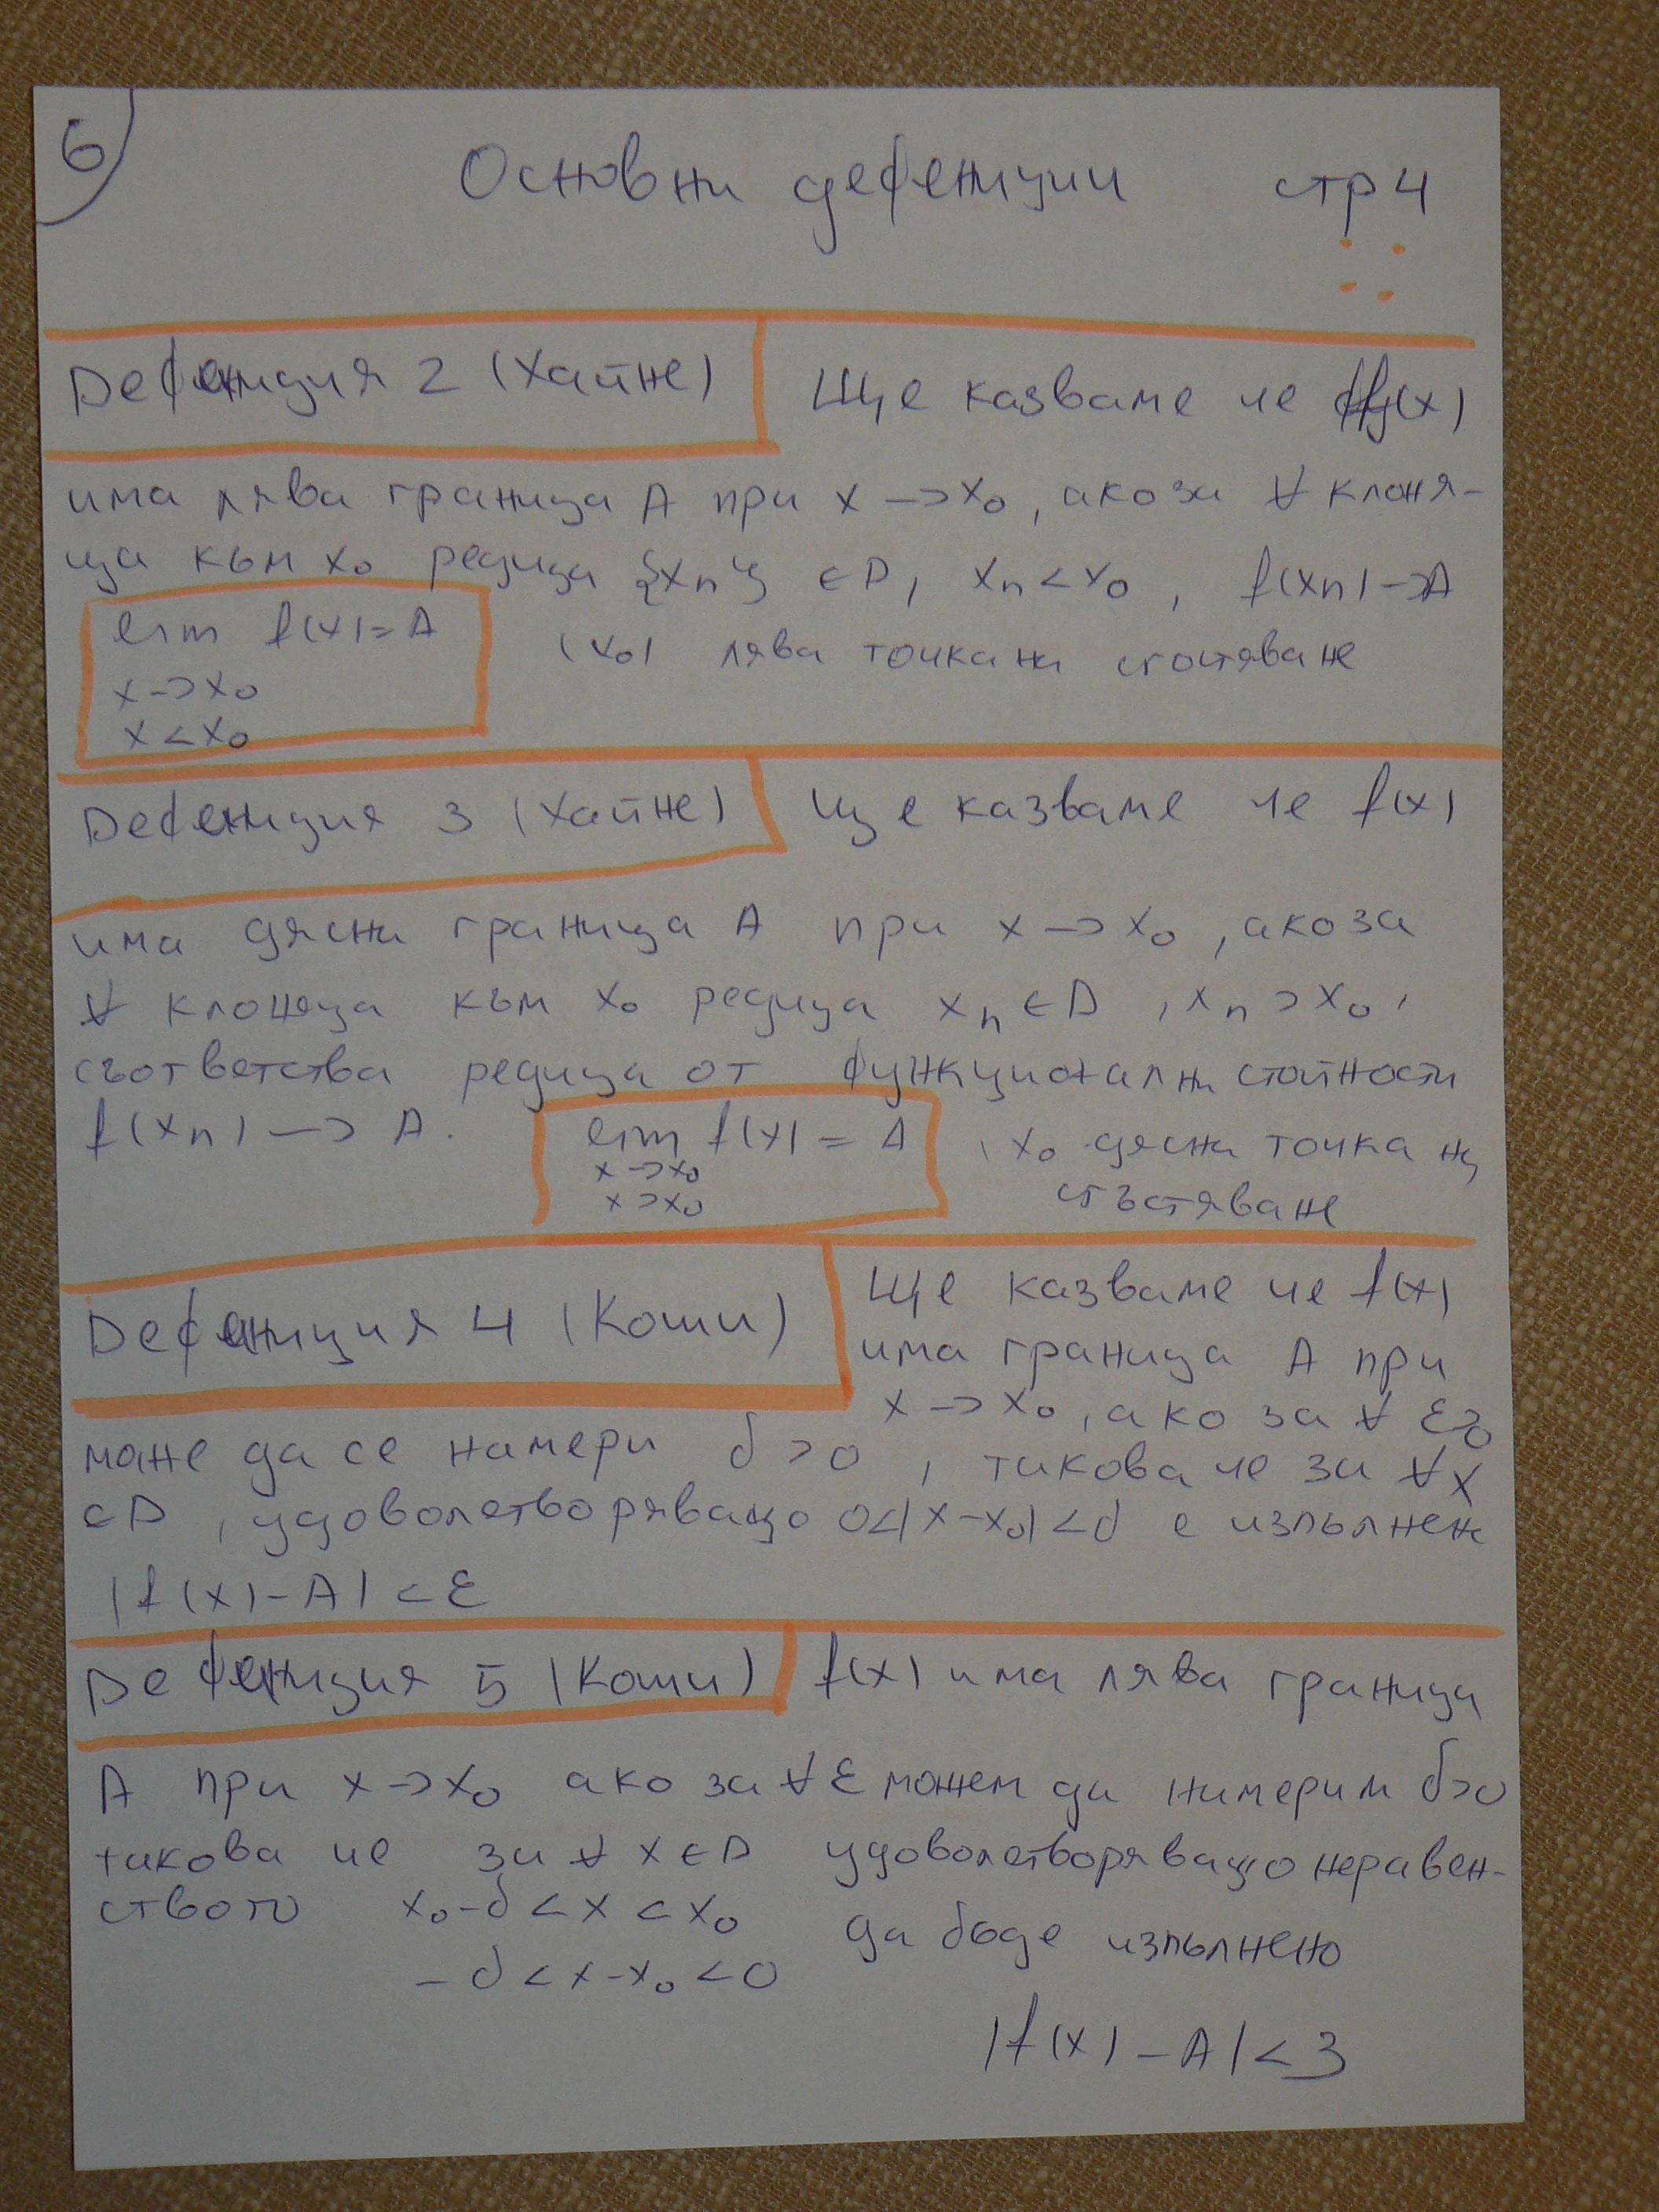 6
Основни дефенизии стр 4
Дефенизия 2 (Хайне) Ще казваме че f(x)
има лява граница A при x —> x₀, ако за ∀ клоня-
ща към x₀ редица {xₙ} ∈ D, xₙ < x₀, f(xₙ) —> A
lim f(x) = A
x —> x₀
x < x₀
(x₀) лява точка на сгъстяване
Дефенизия 3 (Хайне) Ще казваме че f(x)
има дясна граница A при x —> x₀, ако за
∀ клоняща към x₀ редица xₙ ∈ D, xₙ > x₀,
съответства редица от функционални стойности
f(xₙ) —> A.
lim f(x) = A
x —> x₀
x > x₀
, x₀ дясна точка на
сгъстяване
Дефениция 4 (Коши) Ще казваме че f(x)
има граница A при
x —> x₀, ако за ∀ ε>0
може да се намери δ > 0, такова че за ∀ x
∈ D, удоволетворяващо 0<|x-x₀|<δ е изпълнен
|f(x)-A| < ε
Дефенизия 5 (Коши) f(x) има лява граница
A при x —> x₀ ако за ∀ ε можем да намерим δ>0
такова че за ∀ x ∈ D удоволетворяващо неравен-
ството x₀-δ < x < x₀ да бъде изпълнено
-δ < x-x₀ < 0
|f(x) - A| < Ɛ